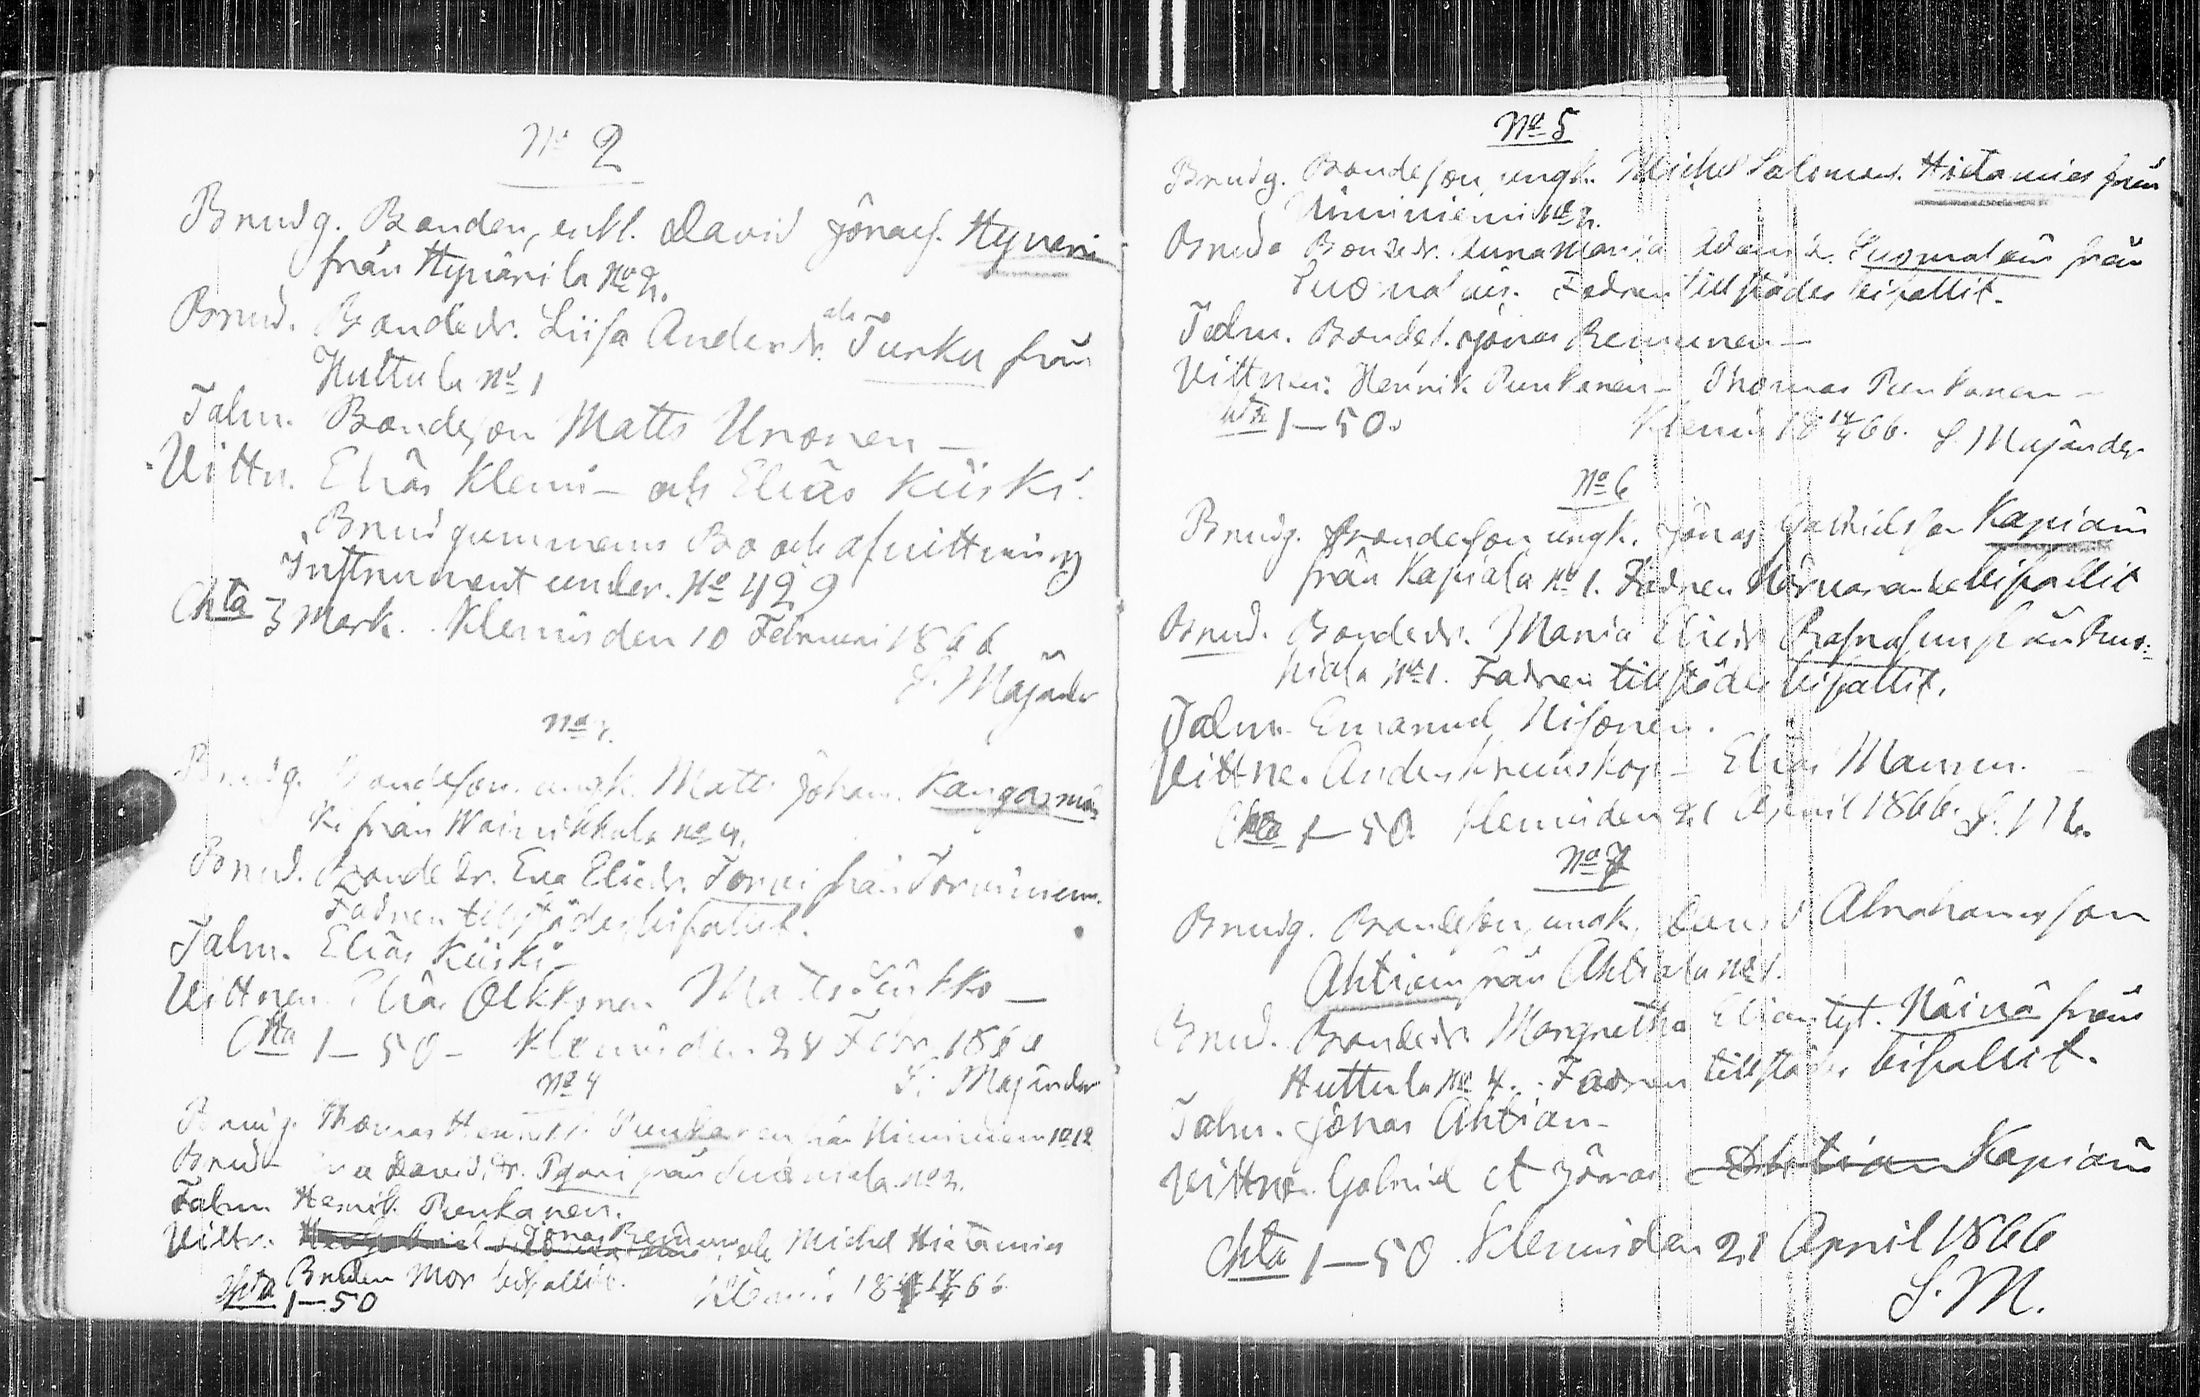 No 2
Brudg. Bonden, enkl. David Jönass. Hyveri
från Hyvärilä No 2.
Brud. Bondedr. Liisa Andersdr. Turku från
Huttula No 1
Talm. Bondeson Matts Unonen —
Vittn. Elias Klemi — och Elias Kiiski.
Brudgummens Bo och afvittning
Instrument under. No 429
Chta 3 Mark. Klemis den 10 Februari 1866
S. Majander
No 3.
Brudg. Bondeson. ungk. Matts Johan. Kangasmäs
ki från Wainikkala No 4.
Brud. Bondedr. Eva Eliedr. Torvi från
Fadren tillstädes bifallit.
Talm. Elias Kiiski —
Vittnen Elias Olkkonen Matts —
Chta 1—50— Klemis den 28 Febr. 1866
No 4 S. Majander
Brudg. Thomas Henriks. Punkanen från Niinimiemi No 12
Brud — Eva Davidsdr. från No 2.
Talm. Henrik Punkanen.
Vittn. Jonas och Michel Hietamies
Bruden Mor bifallit.
Chta 1—50 Klemis 18 14/4 66
No 5
Brudg. Bondeson, ungk. Michel Salomons. Hietamies från
Niinimiemi No 2.
Brud. Bondedr. Anna Maria från
Fadren tillstädes bifallit.
Talm. Bondes. Jönas Remunen —
Vittnen: Henrik Punkanen — Thomas Punkanen —
Chta 1—50. Klemis 18 14/4 66. S Majander
No 6
Brudg. Bondeson ungk. Jönas Gabrielsson Kapiain
från Kapiala No 1. Fadren Närvarande bifallit
Brud. Bondedr. Maria Eliedr från
No 1. Fadren tillstädes bifallit.
Talm. Emanuel Nisonen.
Vittne. Anders — Elias —
Chta 1—50. Klemis den 21 April 1866. S. M.
No 7
Brudg. Bondeson, ungk. David Abrahamsson
Ahtiain från Ahtiala No 1.
Brud. Bondedr. Margretha Eliantyt. Näirä från
Huttula No 4. Fadren tillstädes bifallit.
Talm. Jönas Ahtian —
Vittne. Gabriel et Jönas Ahtian Kapiain
Chta 1—50. Klemis den 21 April 1866
S. M.